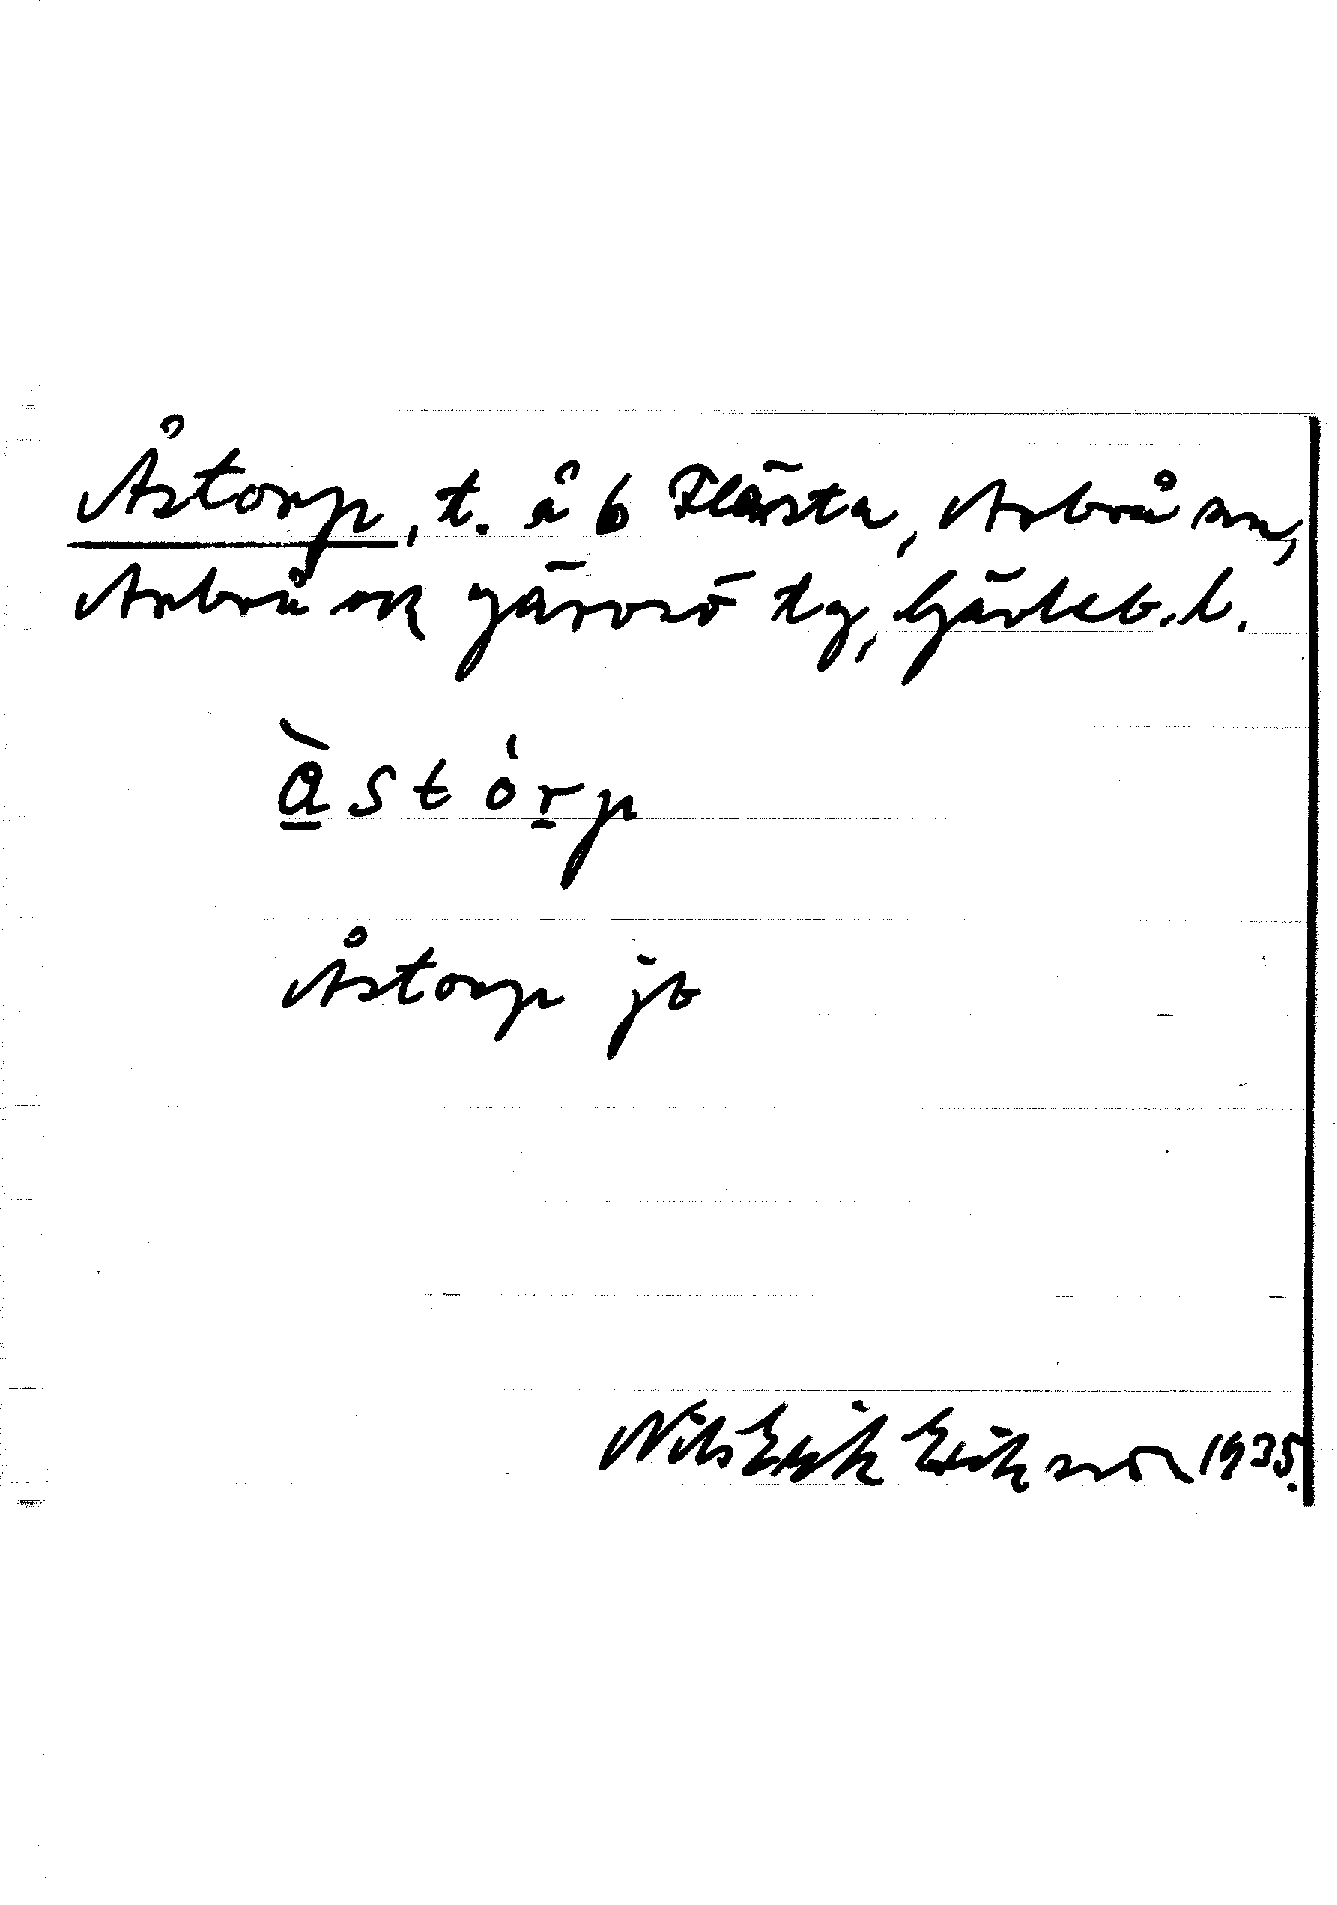 Åstorp, t. å 6 Flästa, Arbrå sn,
Arbrå ok Järvsö tg, Gävleb. l.
å̱̀ s t ó ṟ p
Åstorp jb
Nils Erik Eriksson 1935.